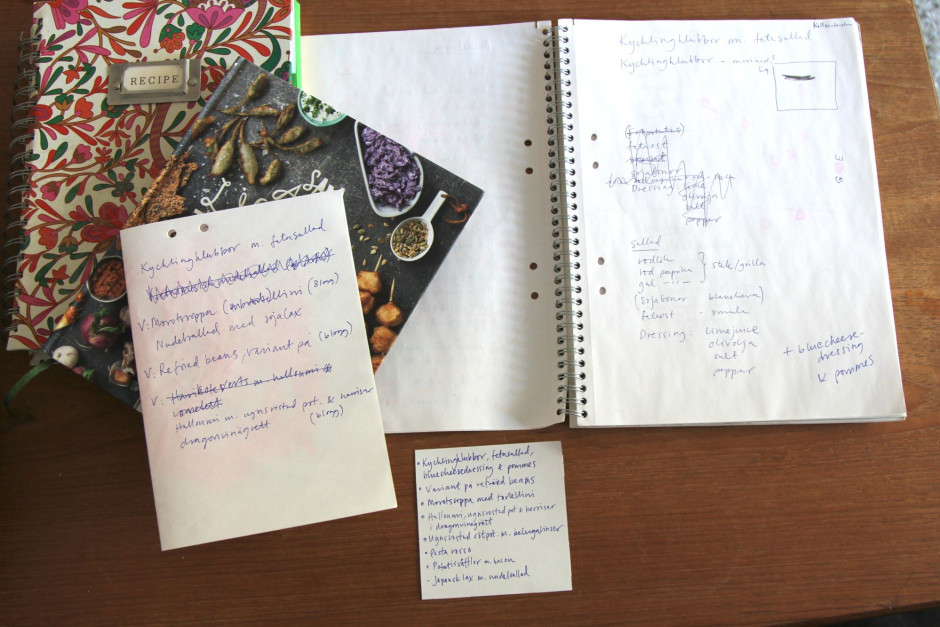 RECIPE
Kycklingklubbor m. fetasallad
V: Morotssoppa
(Blogg)
Nudelsallad med sojalax
V: Refried beans, variant på (blogg)
V: Haricots verts m. halloumi &
omelett
Halloumi m. ugnsrostad pot. & morötter
dragonvinägrett (blogg)
Kycklingklubbor m. fetasallad
Kycklingklubbor -
fetaost
sojabönor
Dressing:
olivolja
salt
peppar
Sallad
rödlök
röd paprika
gul -"- } steka/grilla
(sojabönor blanchera)
fetaost - smula
Dressing: limejuice
olivolja
salt
peppar
+ bluecheese-
dressing
& pommes
• Kycklingklubbor, fetasallad,
bluecheesedressing & pommes
• Variant på refried beans
• Morotssoppa med tortellini
• Halloumi, ugnsrostad pot & morötter
i dragonvinägrett
• Ugnsrostad rotpot. m. belugalinser
• Pasta rosso
• Potatisvåfflor m. bacon
• Japansk lax m. nudelsallad